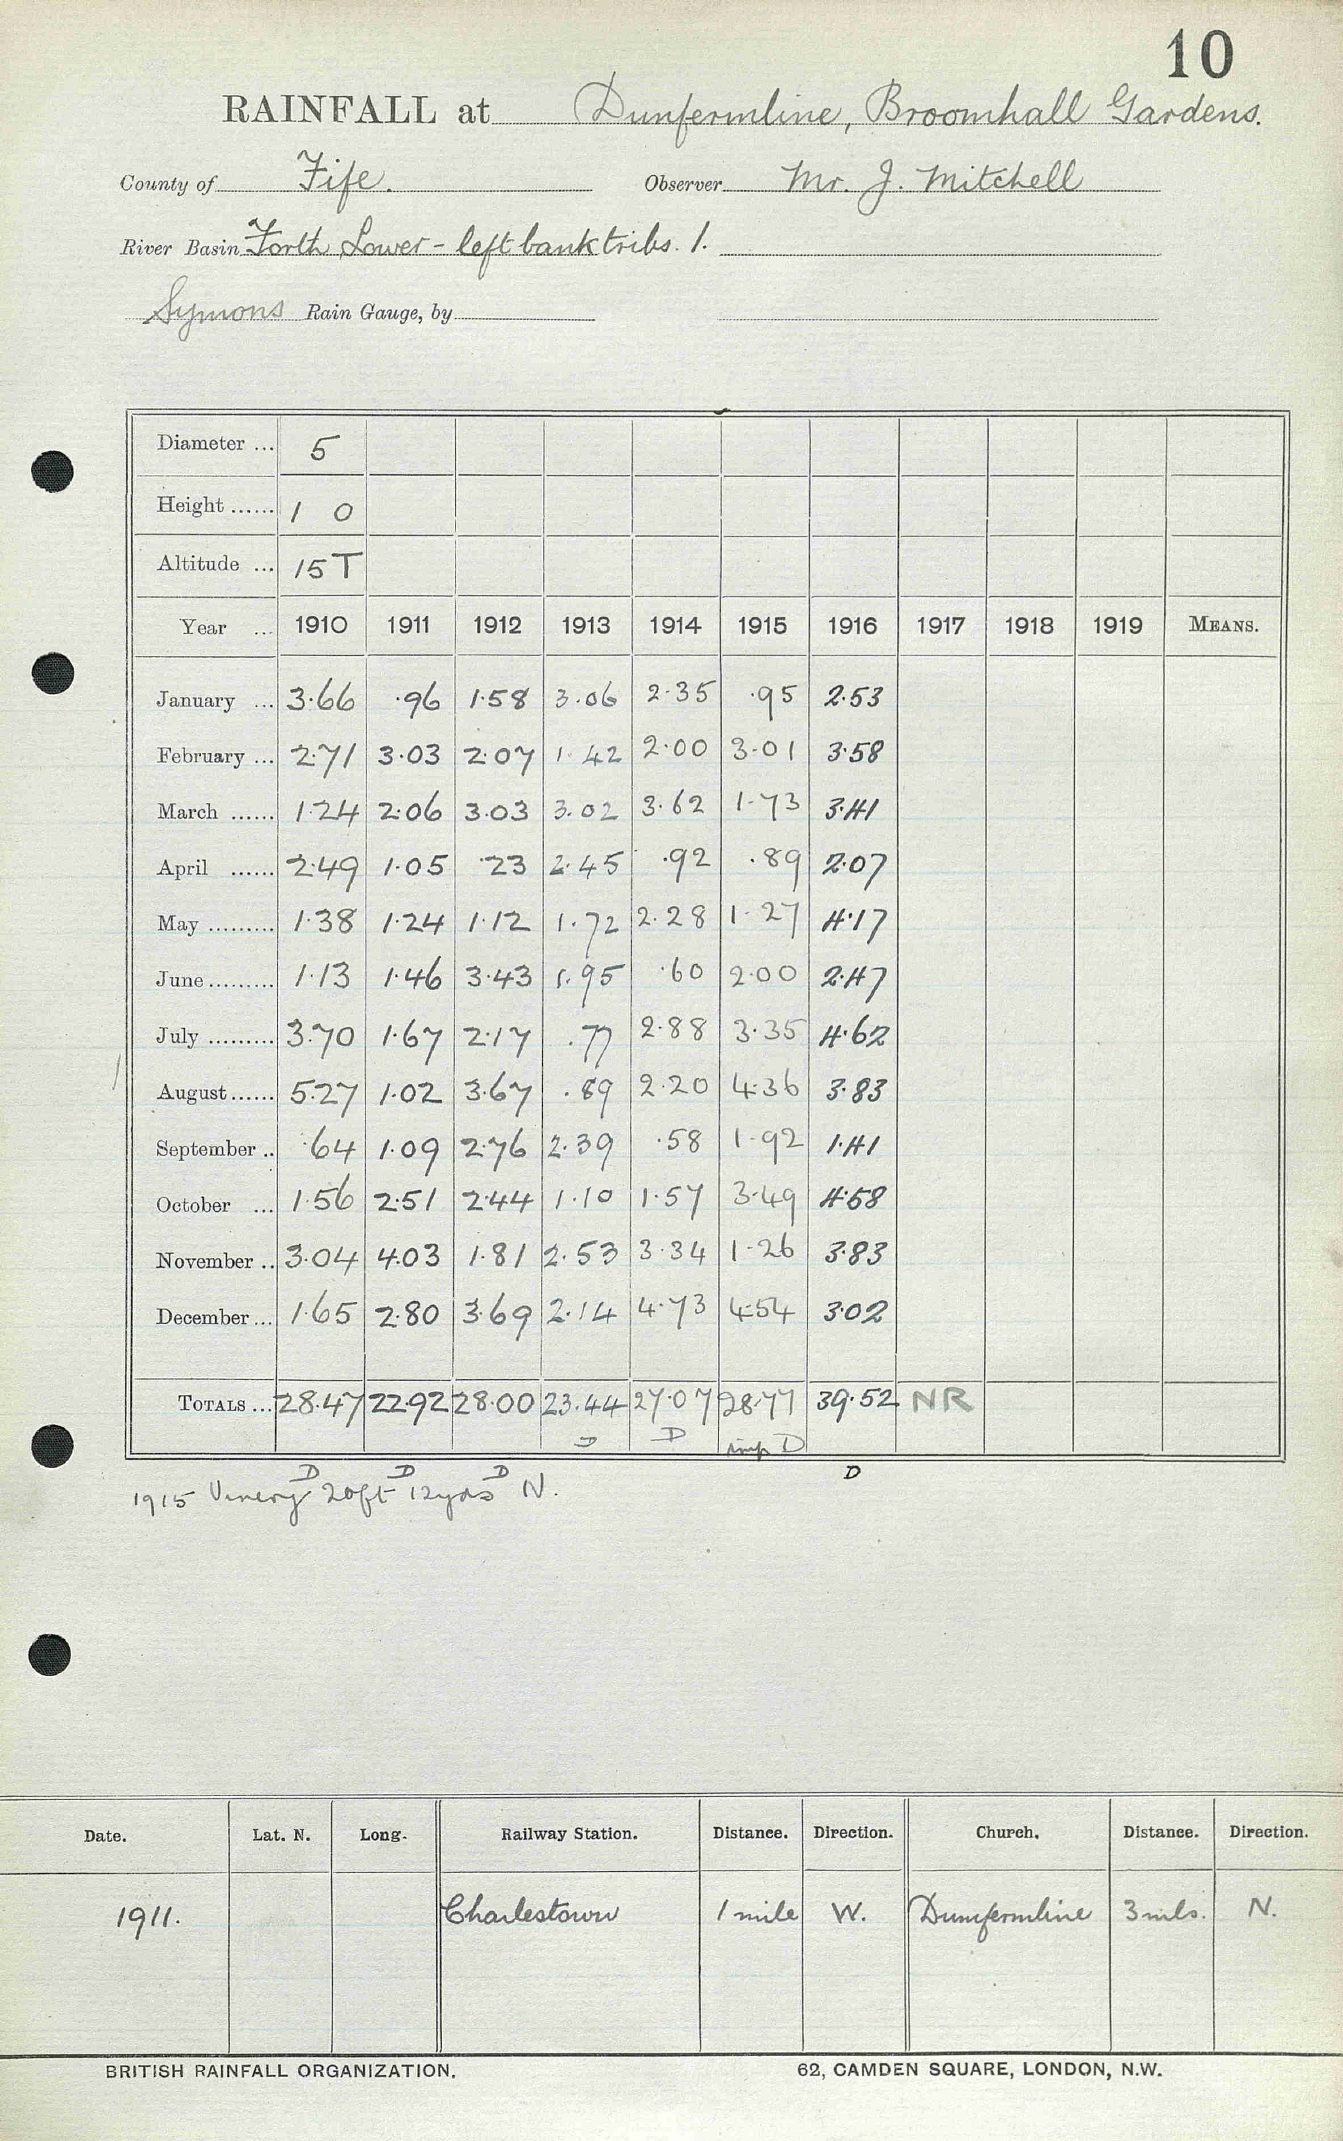 10
RAINFALL at Dunfermline, Broomhall Gardens.
County of Fife. Observer Mr. J. Mitchell
River Basin Forth Lower - left bank tribs. 1.
Symons Rain Gauge, by
Diameter ... 5
Height ...... 1 0
Altitude ... 15T
Year ... 1910 1911 1912 1913 1914 1915 1916 1917 1918 1919 MEANS.
January ... 3.66 .96 1.58 3.06 2.35 .95 2.53
February ... 2.71 3.03 2.07 1.42 2.00 3.01 3.58
March ...... 1.24 2.06 3.03 3.02 3.62 1.73 3.41
April ...... 2.49 1.05 .23 2.45 .92 .89 2.07
May ......... 1.38 1.24 1.12 1.72 2.28 1.27 4.17
June ......... 1.13 1.46 3.43 1.95 .60 2.00 2.47
July ......... 3.70 1.67 2.17 .77 2.88 3.35 4.62
August ...... 5.27 1.02 3.67 .89 2.20 4.36 3.83
September .. .64 1.09 2.76 2.39 .58 1.92 1.41
October ... 1.56 2.51 2.44 1.10 1.57 3.49 4.58
November .. 3.04 4.03 1.81 2.53 3.34 1.26 3.83
December ... 1.65 2.80 3.69 2.14 4.73 4.54 3.02
TOTALS ... 28.47 22.92 28.00 23.44 27.07 28.77 39.52 NR
D D imp D
D D D D
1915 Vinery 20ft 12yds N.
Date. Lat. N. Long. Railway Station. Distance. Direction. Church. Distance. Direction.
1911. Charlestown 1 mile W. Dunfermline 3 mls. N.
BRITISH RAINFALL ORGANIZATION. 62, CAMDEN SQUARE, LONDON, N.W.